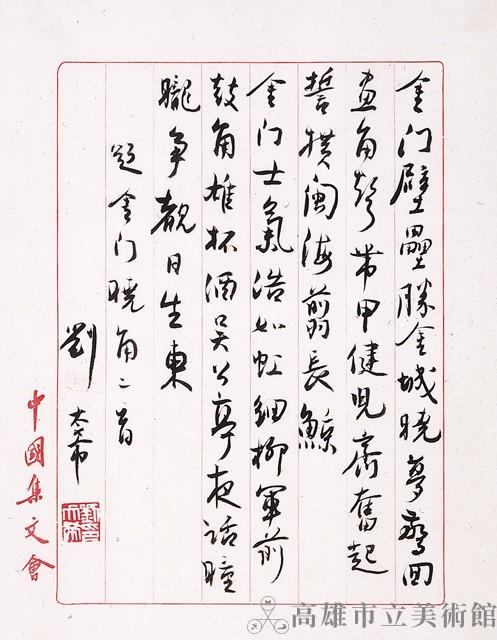 金门壁壘勝金城曉夢驚回
画角聲帶甲健児齊奮起
誓撗闽海翦長鯨
金门士氣浩如虹細柳軍前
鼓角雄杯酒吴公亭夜話瞳
矓争覩日生東
題金门曉角二首
劉太希
中國集文會
高雄市立美術館